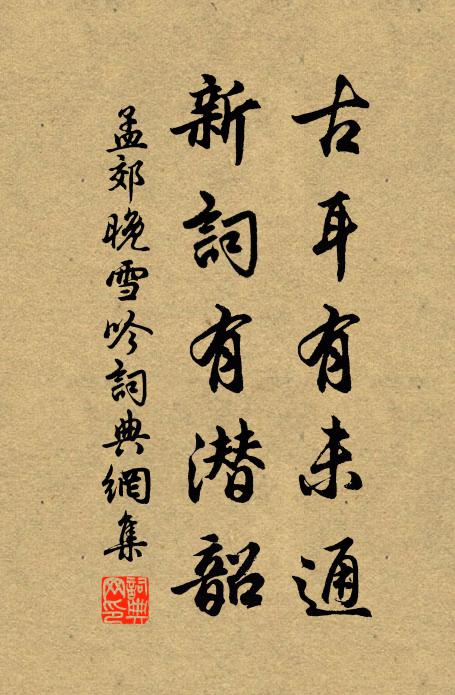 古耳有未通
新詞有潛韶
孟郊晚雪吟詞典網集
詞典網印